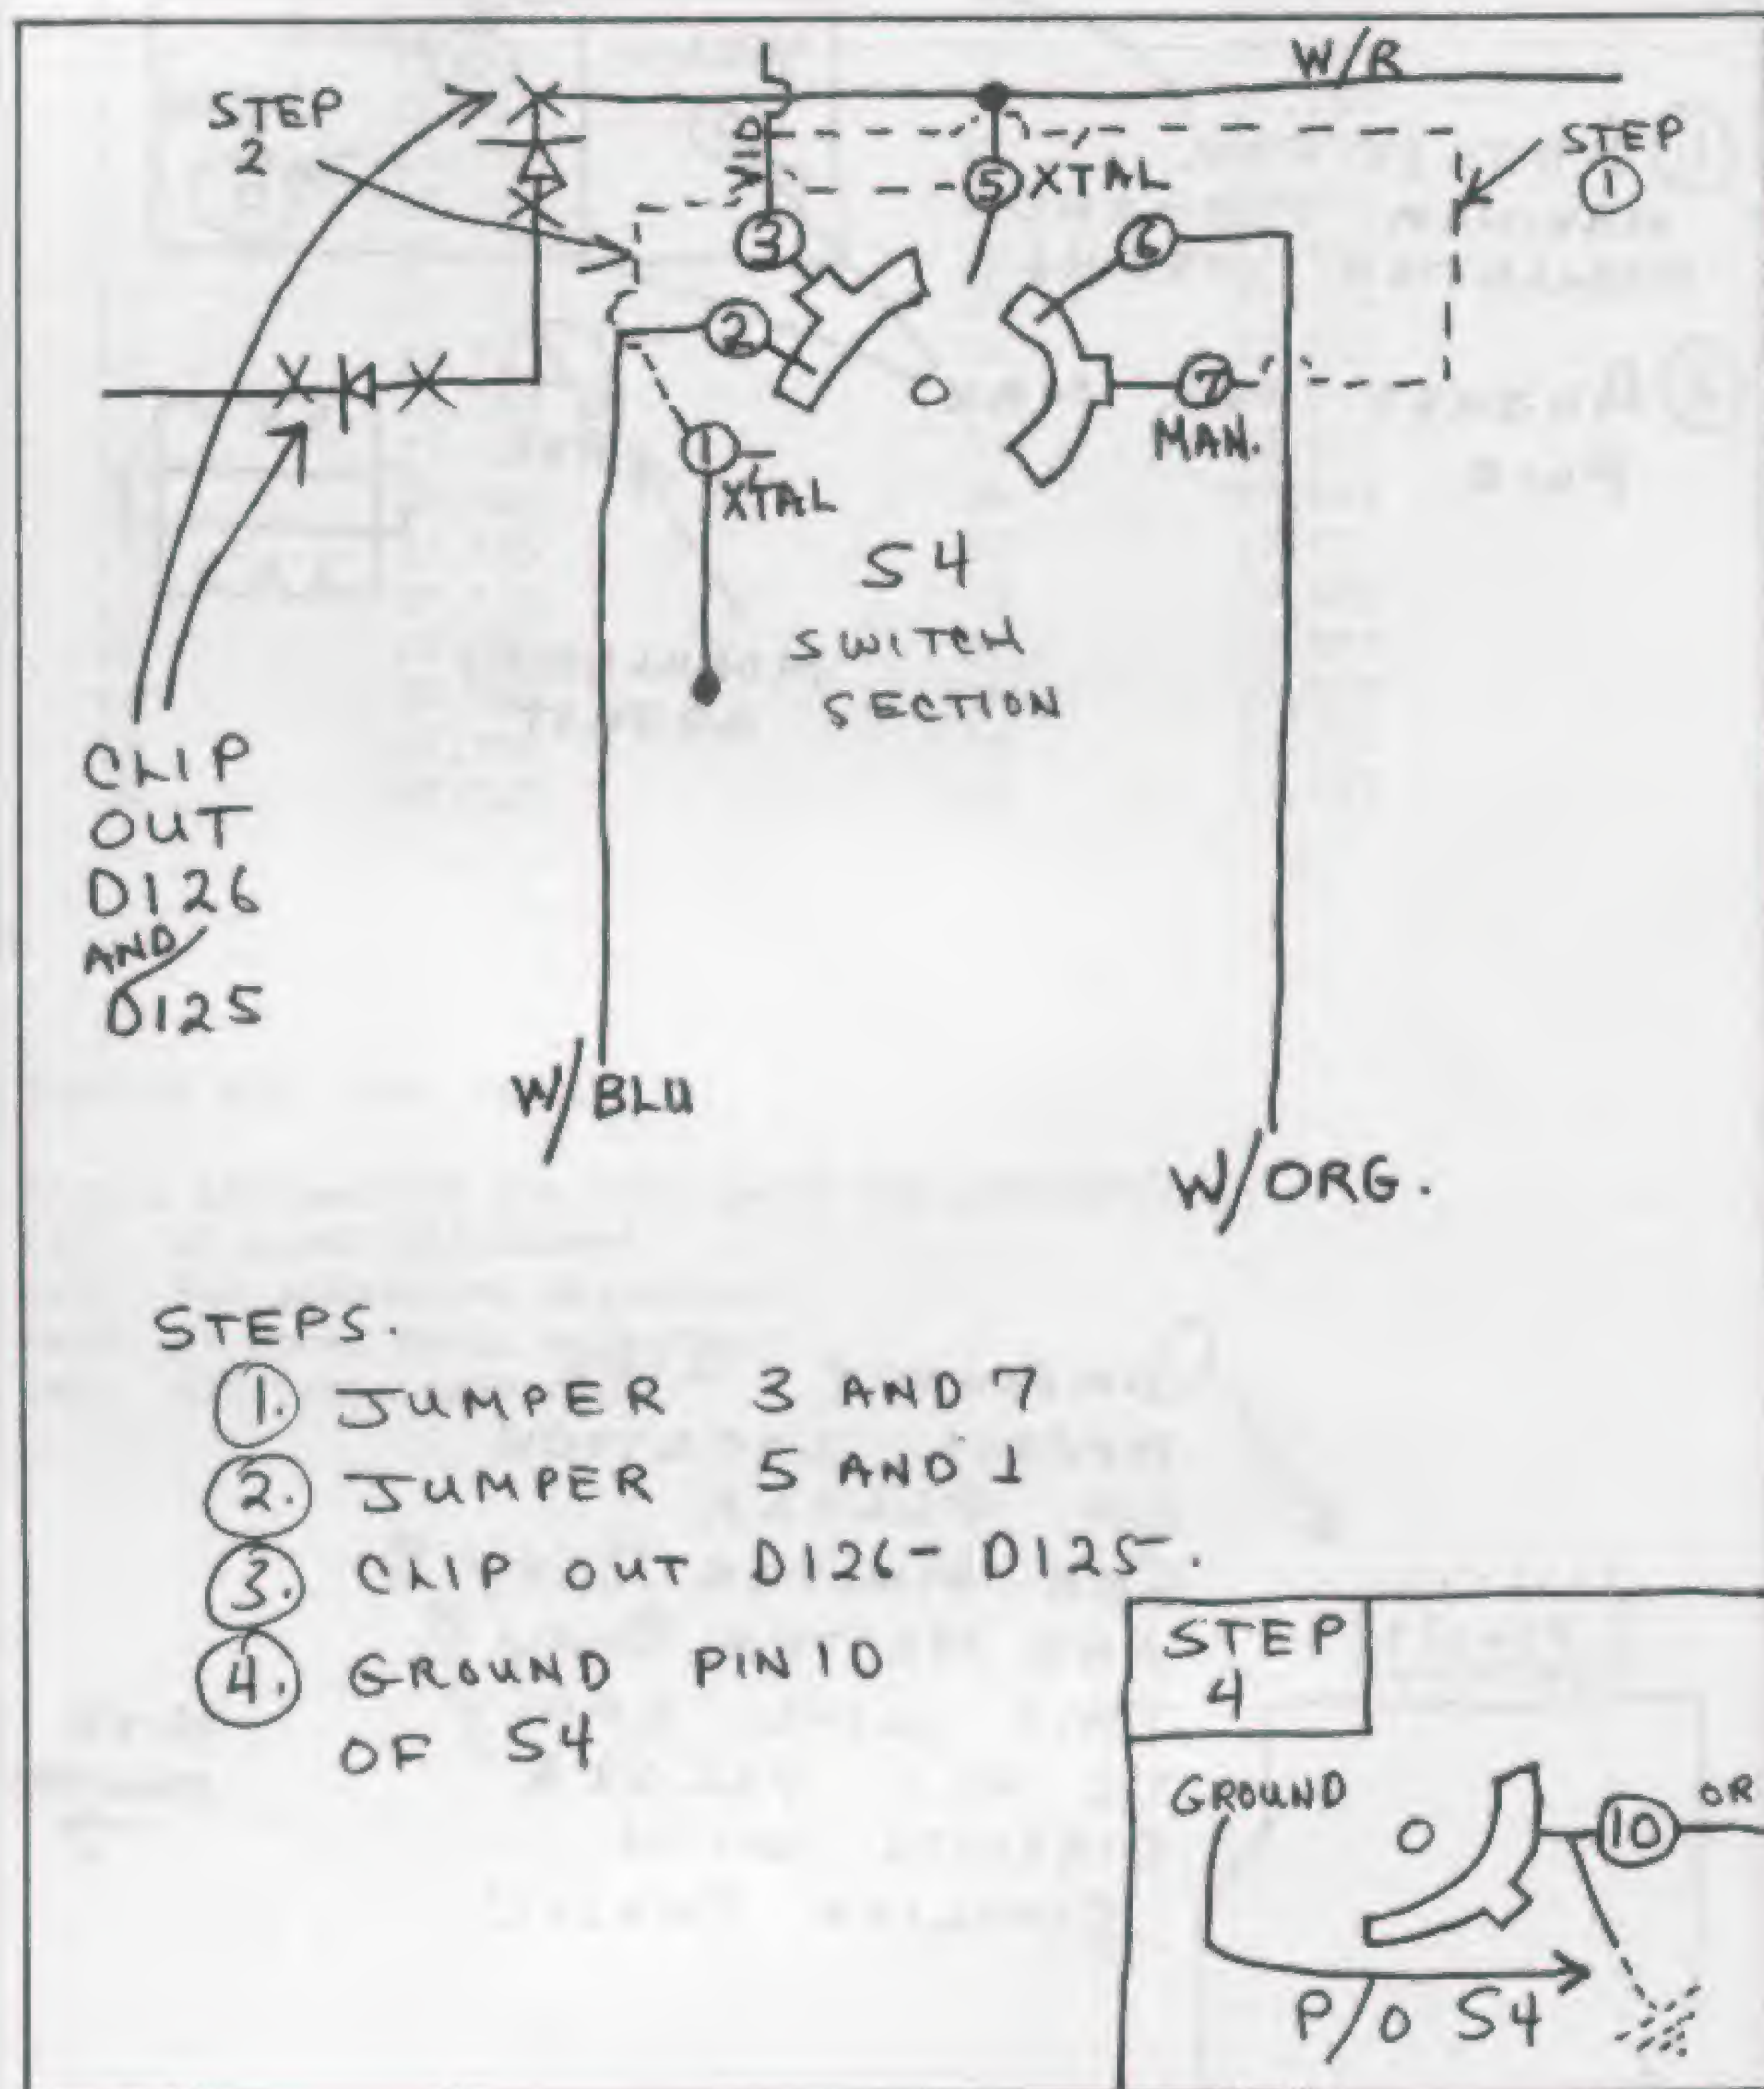 W/R
STEP
2
STEP
1
5 XTAL
3
6
2
7
MAN.
1
XTAL
S4
SWITCH
SECTION
CLIP
OUT
D126
AND
D125
W/BLU
W/ORG.
STEPS.
1. JUMPER 3 AND 7
2. JUMPER 5 AND 1
3. CLIP OUT D126-D125.
4. GROUND PIN 10
OF S4
STEP
4
GROUND
10
OR
P/O S4